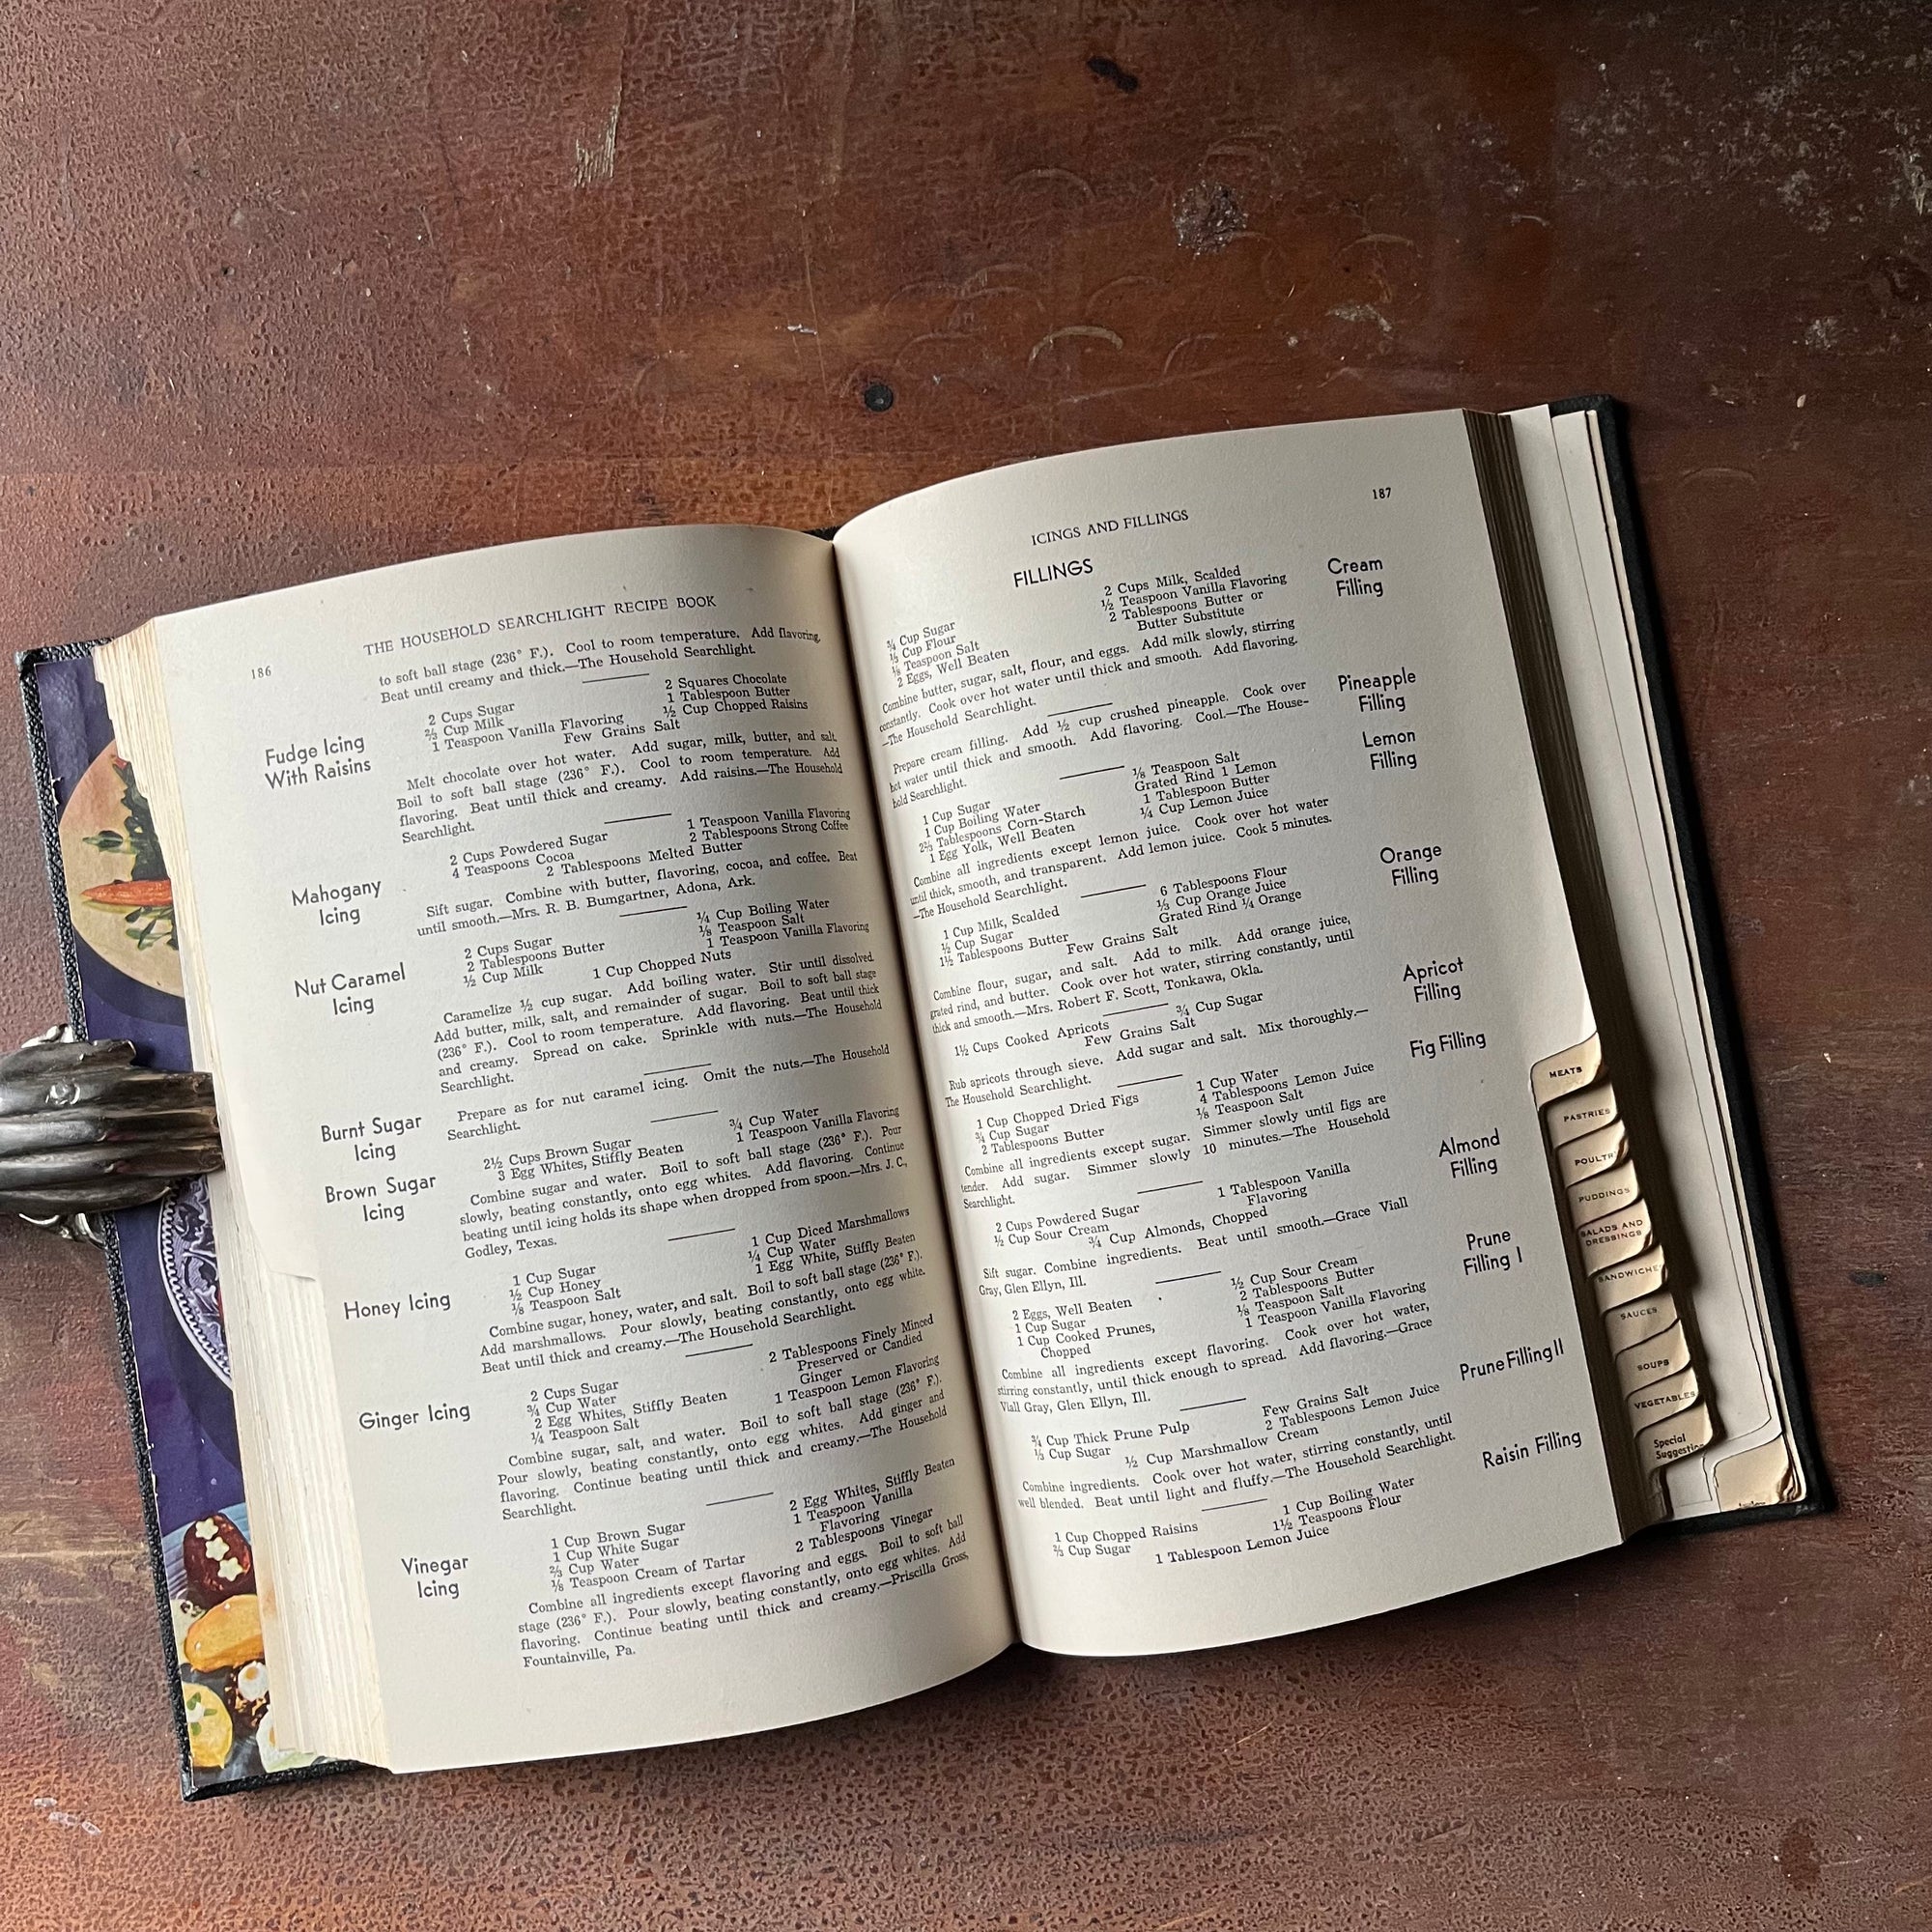 186
THE HOUSEHOLD SEARCHLIGHT RECIPE BOOK
to soft ball stage (236° F.). Cool to room temperature. Add flavoring.
Beat until creamy and thick.—The Household Searchlight.
Fudge Icing
With Raisins
2 Cups Sugar
⅔ Cup Milk
1 Teaspoon Vanilla Flavoring
2 Squares Chocolate
1 Tablespoon Butter
½ Cup Chopped Raisins
Few Grains Salt
Melt chocolate over hot water. Add sugar, milk, butter, and salt.
Boil to soft ball stage (236° F.). Cool to room temperature. Add
flavoring. Beat until thick and creamy. Add raisins.—The Household
Searchlight.
Mahogany
Icing
2 Cups Powdered Sugar
4 Teaspoons Cocoa
1 Teaspoon Vanilla Flavoring
2 Tablespoons Strong Coffee
2 Tablespoons Melted Butter
Sift sugar. Combine with butter, flavoring, cocoa, and coffee. Beat
until smooth.—Mrs. R. B. Bumgartner, Adona, Ark.
Nut Caramel
Icing
2 Cups Sugar
2 Tablespoons Butter
½ Cup Milk
¼ Cup Boiling Water
⅛ Teaspoon Salt
1 Teaspoon Vanilla Flavoring
1 Cup Chopped Nuts
Caramelize ½ cup sugar. Add boiling water. Stir until dissolved.
Add butter, milk, salt, and remainder of sugar. Boil to soft ball stage
(236° F.). Cool to room temperature. Add flavoring. Beat until thick
and creamy. Spread on cake. Sprinkle with nuts.—The Household
Searchlight.
Burnt Sugar
Icing
Prepare as for nut caramel icing. Omit the nuts.—The Household
Searchlight.
Brown Sugar
Icing
2½ Cups Brown Sugar
3 Egg Whites, Stiffly Beaten
¾ Cup Water
1 Teaspoon Vanilla Flavoring
Combine sugar and water. Boil to soft ball stage (236° F.). Pour
slowly, beating constantly, onto egg whites. Add flavoring. Continue
beating until icing holds its shape when dropped from spoon.—Mrs. J. C.,
Godley, Texas.
Honey Icing
1 Cup Sugar
½ Cup Honey
⅛ Teaspoon Salt
1 Cup Diced Marshmallows
¼ Cup Water
1 Egg White, Stiffly Beaten
Combine sugar, honey, water, and salt. Boil to soft ball stage (236° F.).
Add marshmallows. Pour slowly, beating constantly, onto egg white.
Beat until thick and creamy.—The Household Searchlight.
Ginger Icing
2 Cups Sugar
¾ Cup Water
2 Egg Whites, Stiffly Beaten
¼ Teaspoon Salt
2 Tablespoons Finely Minced
Preserved or Candied
Ginger
1 Teaspoon Lemon Flavoring
Combine sugar, salt, and water. Boil to soft ball stage (236° F.).
Pour slowly, beating constantly, onto egg whites. Add ginger and
flavoring. Continue beating until thick and creamy.—The Household
Searchlight.
Vinegar
Icing
1 Cup Brown Sugar
1 Cup White Sugar
⅔ Cup Water
⅛ Teaspoon Cream of Tartar
2 Egg Whites, Stiffly Beaten
1 Teaspoon Vanilla
Flavoring
2 Tablespoons Vinegar
Combine all ingredients except flavoring and eggs. Boil to soft ball
stage (236° F.). Pour slowly, beating constantly, onto egg whites. Add
flavoring. Continue beating until thick and creamy.—Priscilla Gross,
Fountainville, Pa.
ICINGS AND FILLINGS
187
FILLINGS
Cream
Filling
¾ Cup Sugar
⅓ Cup Flour
⅛ Teaspoon Salt
2 Eggs, Well Beaten
2 Cups Milk, Scalded
½ Teaspoon Vanilla Flavoring
2 Tablespoons Butter or
Butter Substitute
Combine butter, sugar, salt, flour, and eggs. Add milk slowly, stirring
constantly. Cook over hot water until thick and smooth. Add flavoring.
—The Household Searchlight.
Pineapple
Filling
Prepare cream filling. Add ½ cup crushed pineapple. Cook over
hot water until thick and smooth. Add flavoring. Cool.—The House-
hold Searchlight.
Lemon
Filling
1 Cup Sugar
1 Cup Boiling Water
2⅔ Tablespoons Corn-Starch
1 Egg Yolk, Well Beaten
⅛ Teaspoon Salt
Grated Rind 1 Lemon
1 Tablespoon Butter
¼ Cup Lemon Juice
Combine all ingredients except lemon juice. Cook over hot water
until thick, smooth, and transparent. Add lemon juice. Cook 5 minutes.
—The Household Searchlight.
Orange
Filling
1 Cup Milk, Scalded
½ Cup Sugar
1½ Tablespoons Butter
6 Tablespoons Flour
⅓ Cup Orange Juice
Grated Rind ¼ Orange
Few Grains Salt
Combine flour, sugar, and salt. Add to milk. Add orange juice,
grated rind, and butter. Cook over hot water, stirring constantly, until
thick and smooth.—Mrs. Robert F. Scott, Tonkawa, Okla.
Apricot
Filling
1½ Cups Cooked Apricots
¾ Cup Sugar
Few Grains Salt
Rub apricots through sieve. Add sugar and salt. Mix thoroughly.—
The Household Searchlight.
Fig Filling
1 Cup Chopped Dried Figs
¾ Cup Sugar
2 Tablespoons Butter
1 Cup Water
4 Tablespoons Lemon Juice
⅛ Teaspoon Salt
Combine all ingredients except sugar. Simmer slowly until figs are
tender. Add sugar. Simmer slowly 10 minutes.—The Household
Searchlight.
Almond
Filling
2 Cups Powdered Sugar
½ Cup Sour Cream
1 Tablespoon Vanilla
Flavoring
¾ Cup Almonds, Chopped
Sift sugar. Combine ingredients. Beat until smooth.—Grace Viall
Gray, Glen Ellyn, Ill.
Prune
Filling I
2 Eggs, Well Beaten
1 Cup Sugar
1 Cup Cooked Prunes,
Chopped
½ Cup Sour Cream
2 Tablespoons Butter
⅛ Teaspoon Salt
1 Teaspoon Vanilla Flavoring
Combine all ingredients except flavoring. Cook over hot water,
stirring constantly, until thick enough to spread. Add flavoring.—Grace
Viall Gray, Glen Ellyn, Ill.
Prune Filling II
¾ Cup Thick Prune Pulp
⅓ Cup Sugar
Few Grains Salt
2 Tablespoons Lemon Juice
½ Cup Marshmallow Cream
Combine ingredients. Cook over hot water, stirring constantly, until
well blended. Beat until light and fluffy.—The Household Searchlight.
Raisin Filling
1 Cup Chopped Raisins
⅔ Cup Sugar
1 Cup Boiling Water
1½ Teaspoons Flour
1 Tablespoon Lemon Juice
MEATS
PASTRIES
POULTR
PUDDINGS
SALADS AND
DRESSINGS
SANDWICHE
SAUCES
SOUPS
VEGETABLES
Special
Suggestion